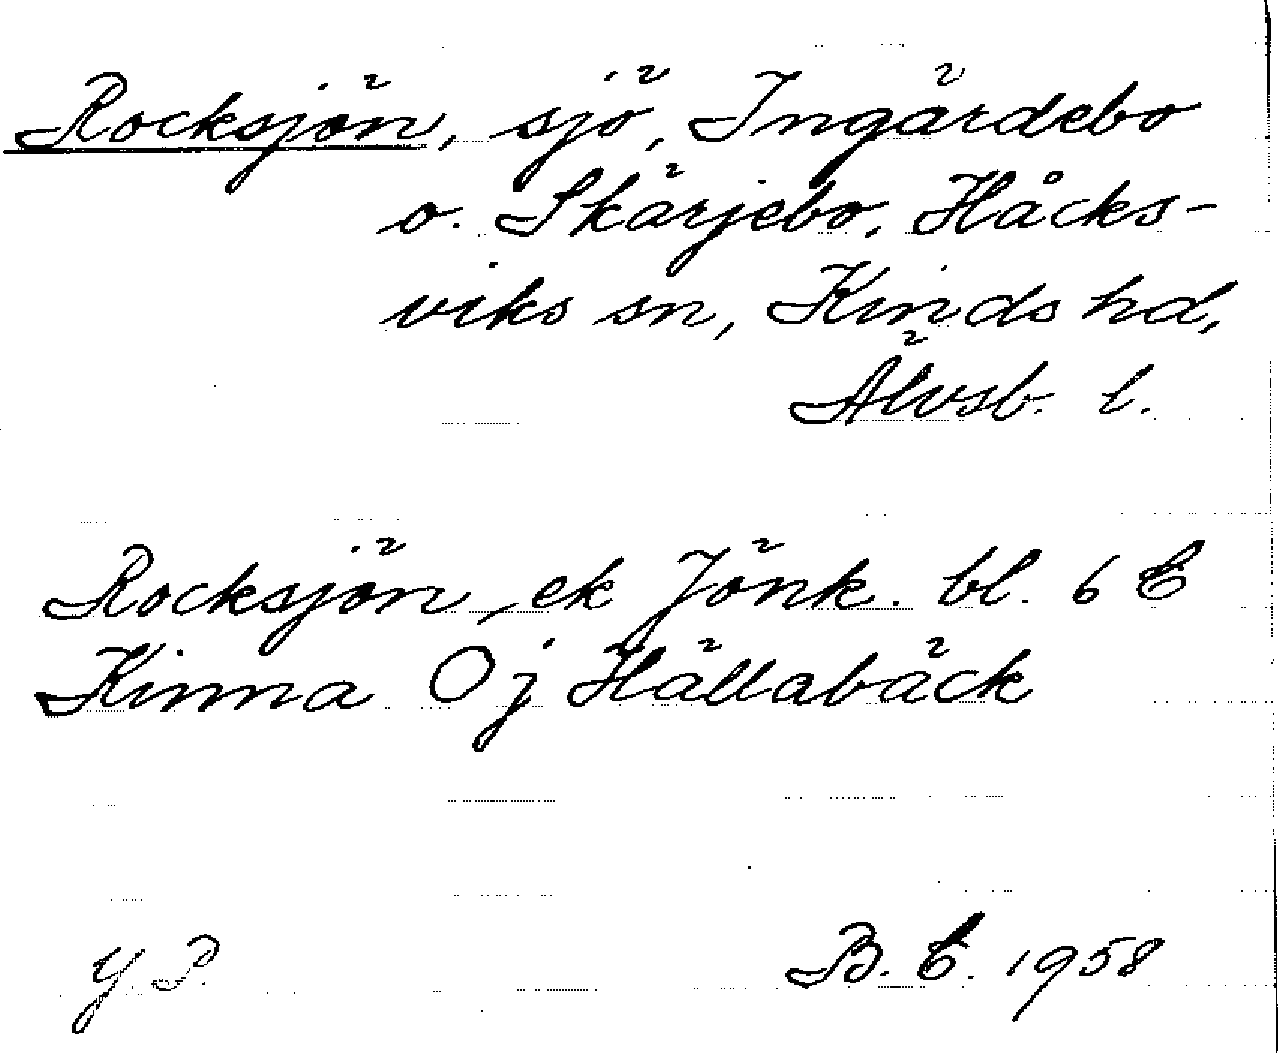 Rocksjön, sjö, Ingärdebo
o. Skärjebo, Håcks-
viks sn, Kinds hd,
Älvsb. l.
Rocksjön, ek Jönk. bl. 6 C
Kinna O j Hällabäck
Y. P. B. C. 1958